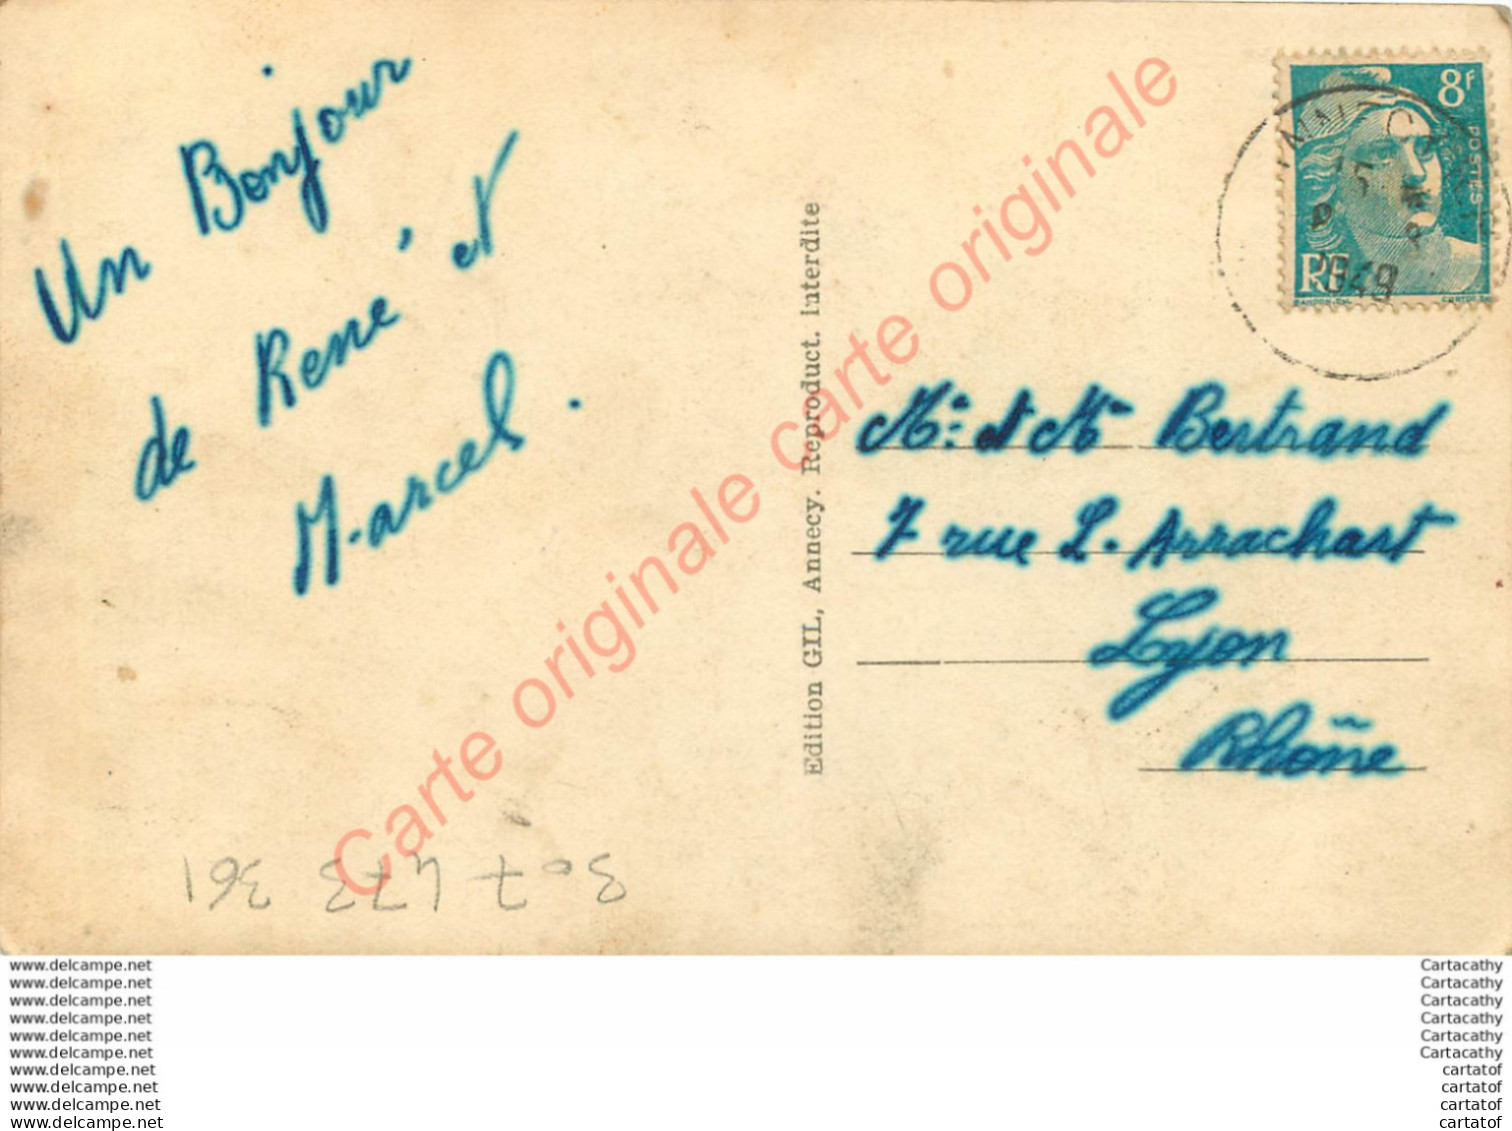 Un Bonjour
de René et
Marcel.
Edition GIL, Annecy. Reproduct. Interdite
8F
POSTES
RF
1949
Mr. et Me Bertrand
7 rue L. Arrachart
Lyon
Rhône
307 473 361
Carte originale carte originale
www.delcampe.net
www.delcampe.net
www.delcampe.net
www.delcampe.net
www.delcampe.net
www.delcampe.net
www.delcampe.net
www.delcampe.net
www.delcampe.net
www.delcampe.net
Cartacathy
Cartacathy
Cartacathy
Cartacathy
Cartacathy
Cartacathy
cartatof
cartatof
cartatof
cartatof